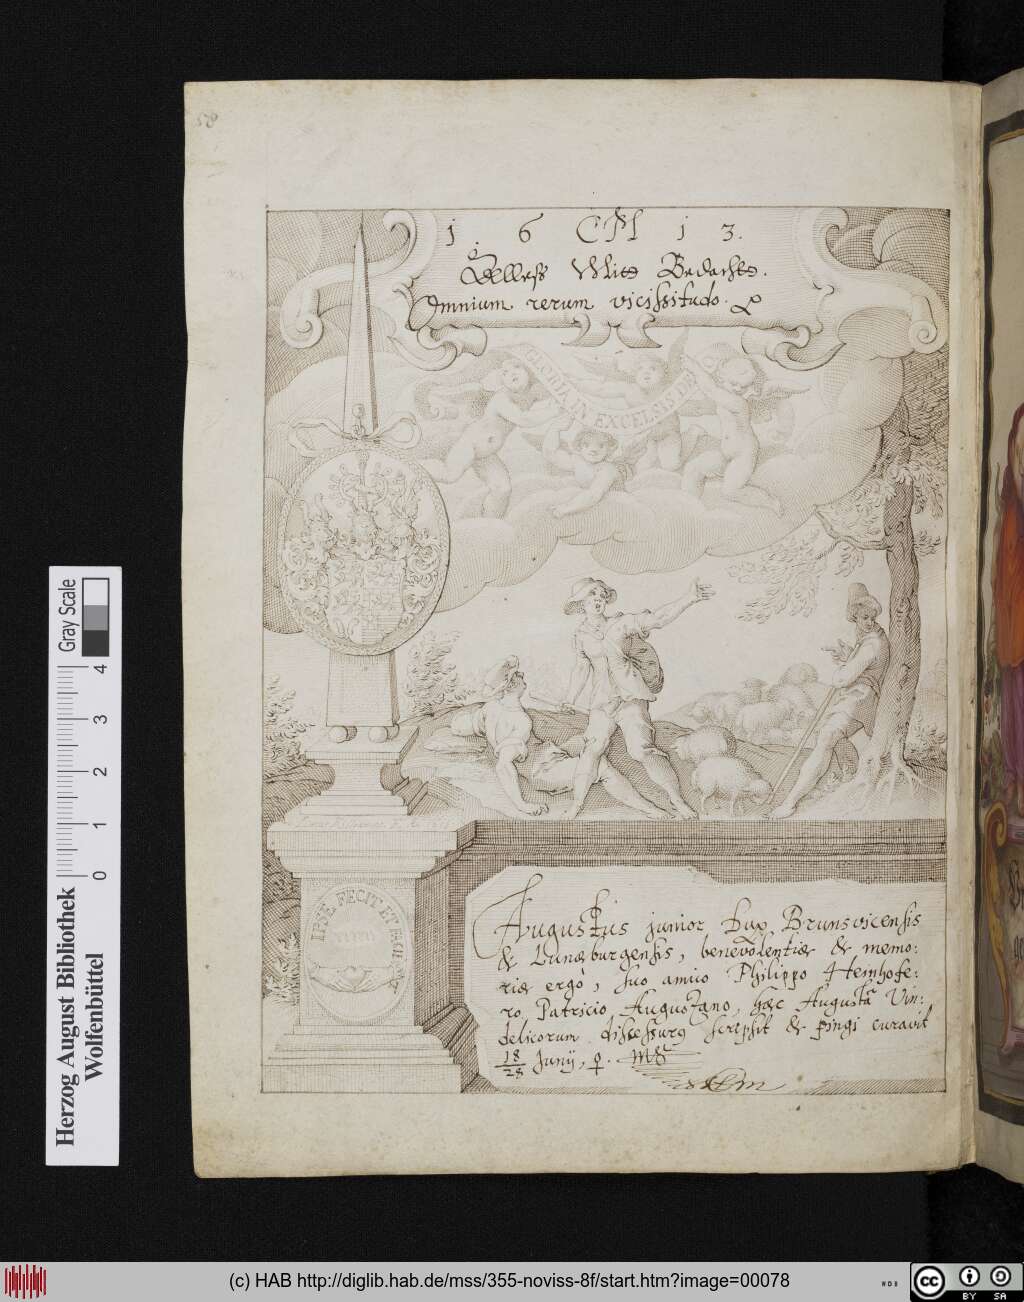 1 6 CM 1 3.
Alless Mit Bedacht.
Omnium rerum vicissitudo.
GLORIA IN EXCELSIS DEO
IPSE FECIT ET
Augustus junior Dux Brunsvicensis
& Lunæburgensis, benevolentiæ & memo:
riæ ergò, suo amico Philippo Heinhofe:
ro Patricio Augustano, hæc Augustâ Vin:
delicorum discessurus scripsit & pingi curavit
18/28 Junij, ♀.
Herzog August Bibliothek
Wolfenbüttel
Gray Scale
0 1 2 3 4
(c) HAB http://diglib.hab.de/mss/355-noviss-8f/start.htm?image=00078
WDB
cc BY SA